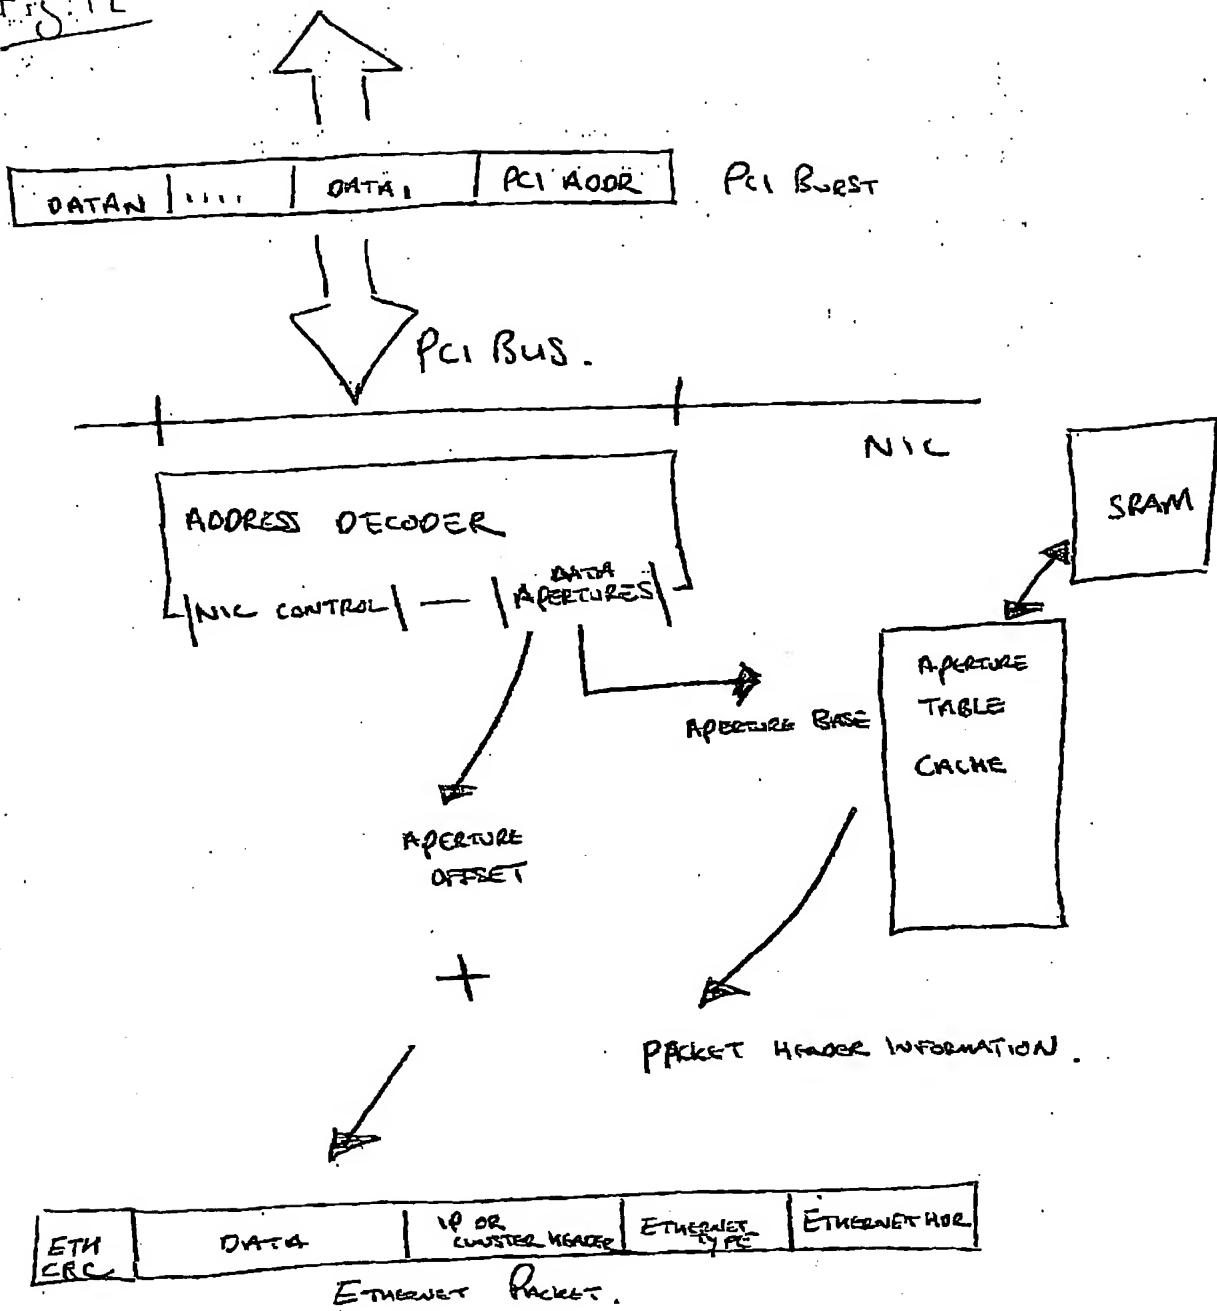 Fig. 12
DATAN | .... | DATA1 | PCI ADDR
PCI BURST
PCI BUS.
NIC
SRAM
ADDRESS DECODER
DATA
NIC CONTROL — APERTURES
APERTURE
TABLE
CACHE
APERTURE BASE
APERTURE
OFFSET
+
PACKET HEADER INFORMATION.
ETH
CRC
DATA
IP OR
CLUSTER HEADER
ETHERNET
TYPE
ETHERNET HDR
ETHERNET PACKET.